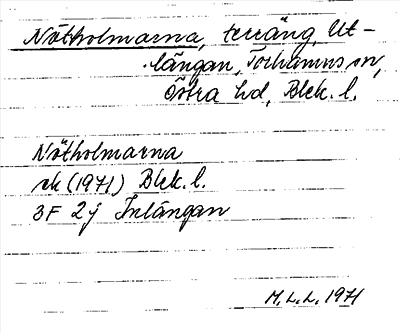 Nötholmarna, terräng, Ut-
längan, Torhamns sn,
Östra hd, Blek. l.
Nötholmarna
ek (1971) Blek. l.
3F 2j Inlängan
M.L.L. 1971